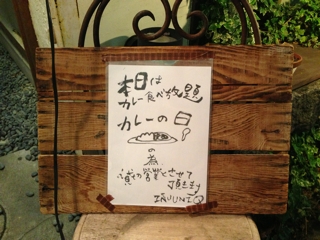 本日は
カレー食べ放題
カレーの日
の為
貸切営業とさせて
頂きます